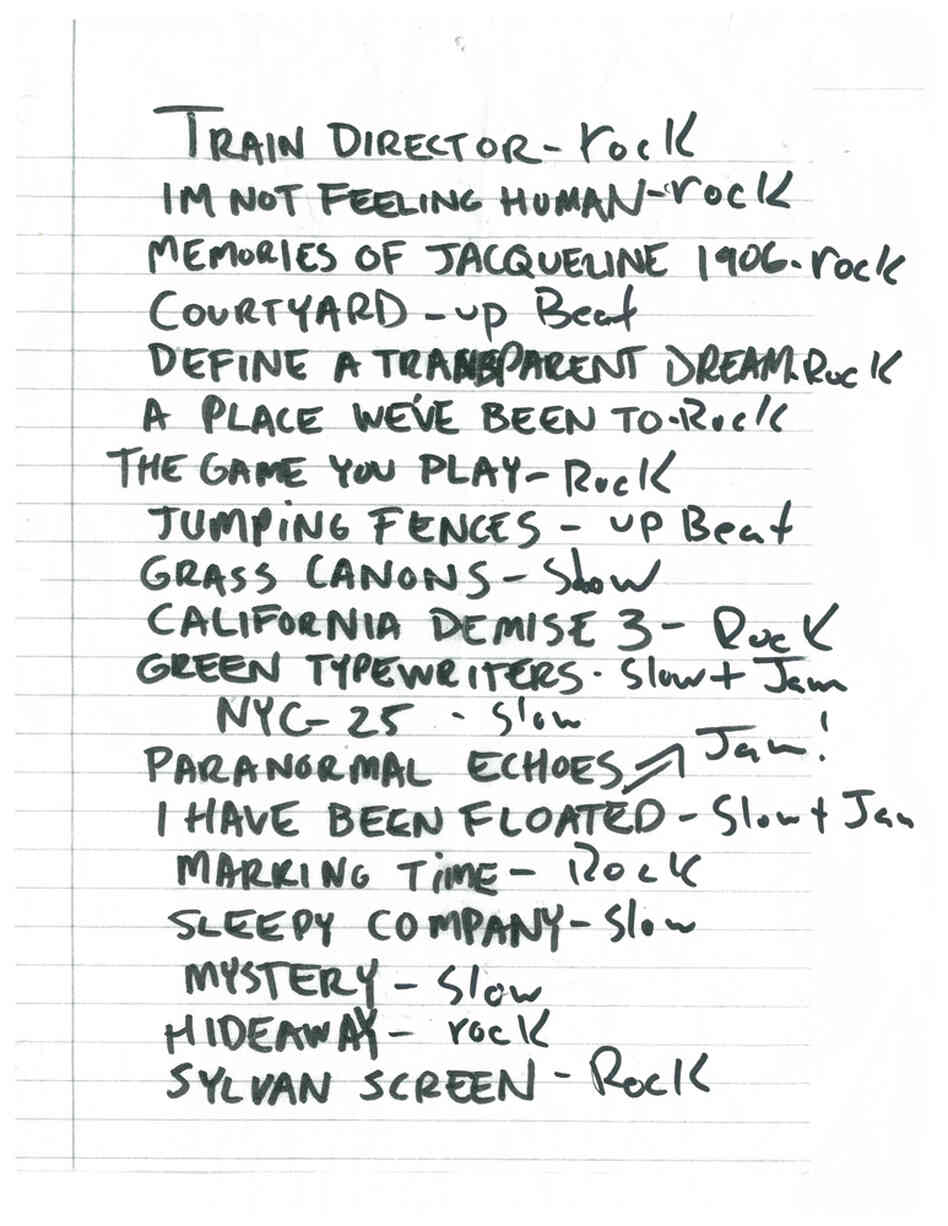 TRAIN DIRECTOR - rock
IM NOT FEELING HUMAN - rock
MEMORIES OF JACQUELINE 1906 - rock
COURTYARD - up Beat
DEFINE A TRANSPARENT DREAM - Rock
A PLACE WE'VE BEEN TO - Rock
THE GAME YOU PLAY - Rock
JUMPING FENCES - UP Beat
GRASS CANONS - Slow
CALIFORNIA DEMISE 3 - Rock
GREEN TYPEWRITERS - Slow + Jam
NYC-25 - Slow
PARANORMAL ECHOES Jam!
I HAVE BEEN FLOATED - Slow + Jam
MARKING TIME - Rock
SLEEPY COMPANY - Slow
MYSTERY - Slow
HIDEAWAY - rock
SYLVAN SCREEN - Rock